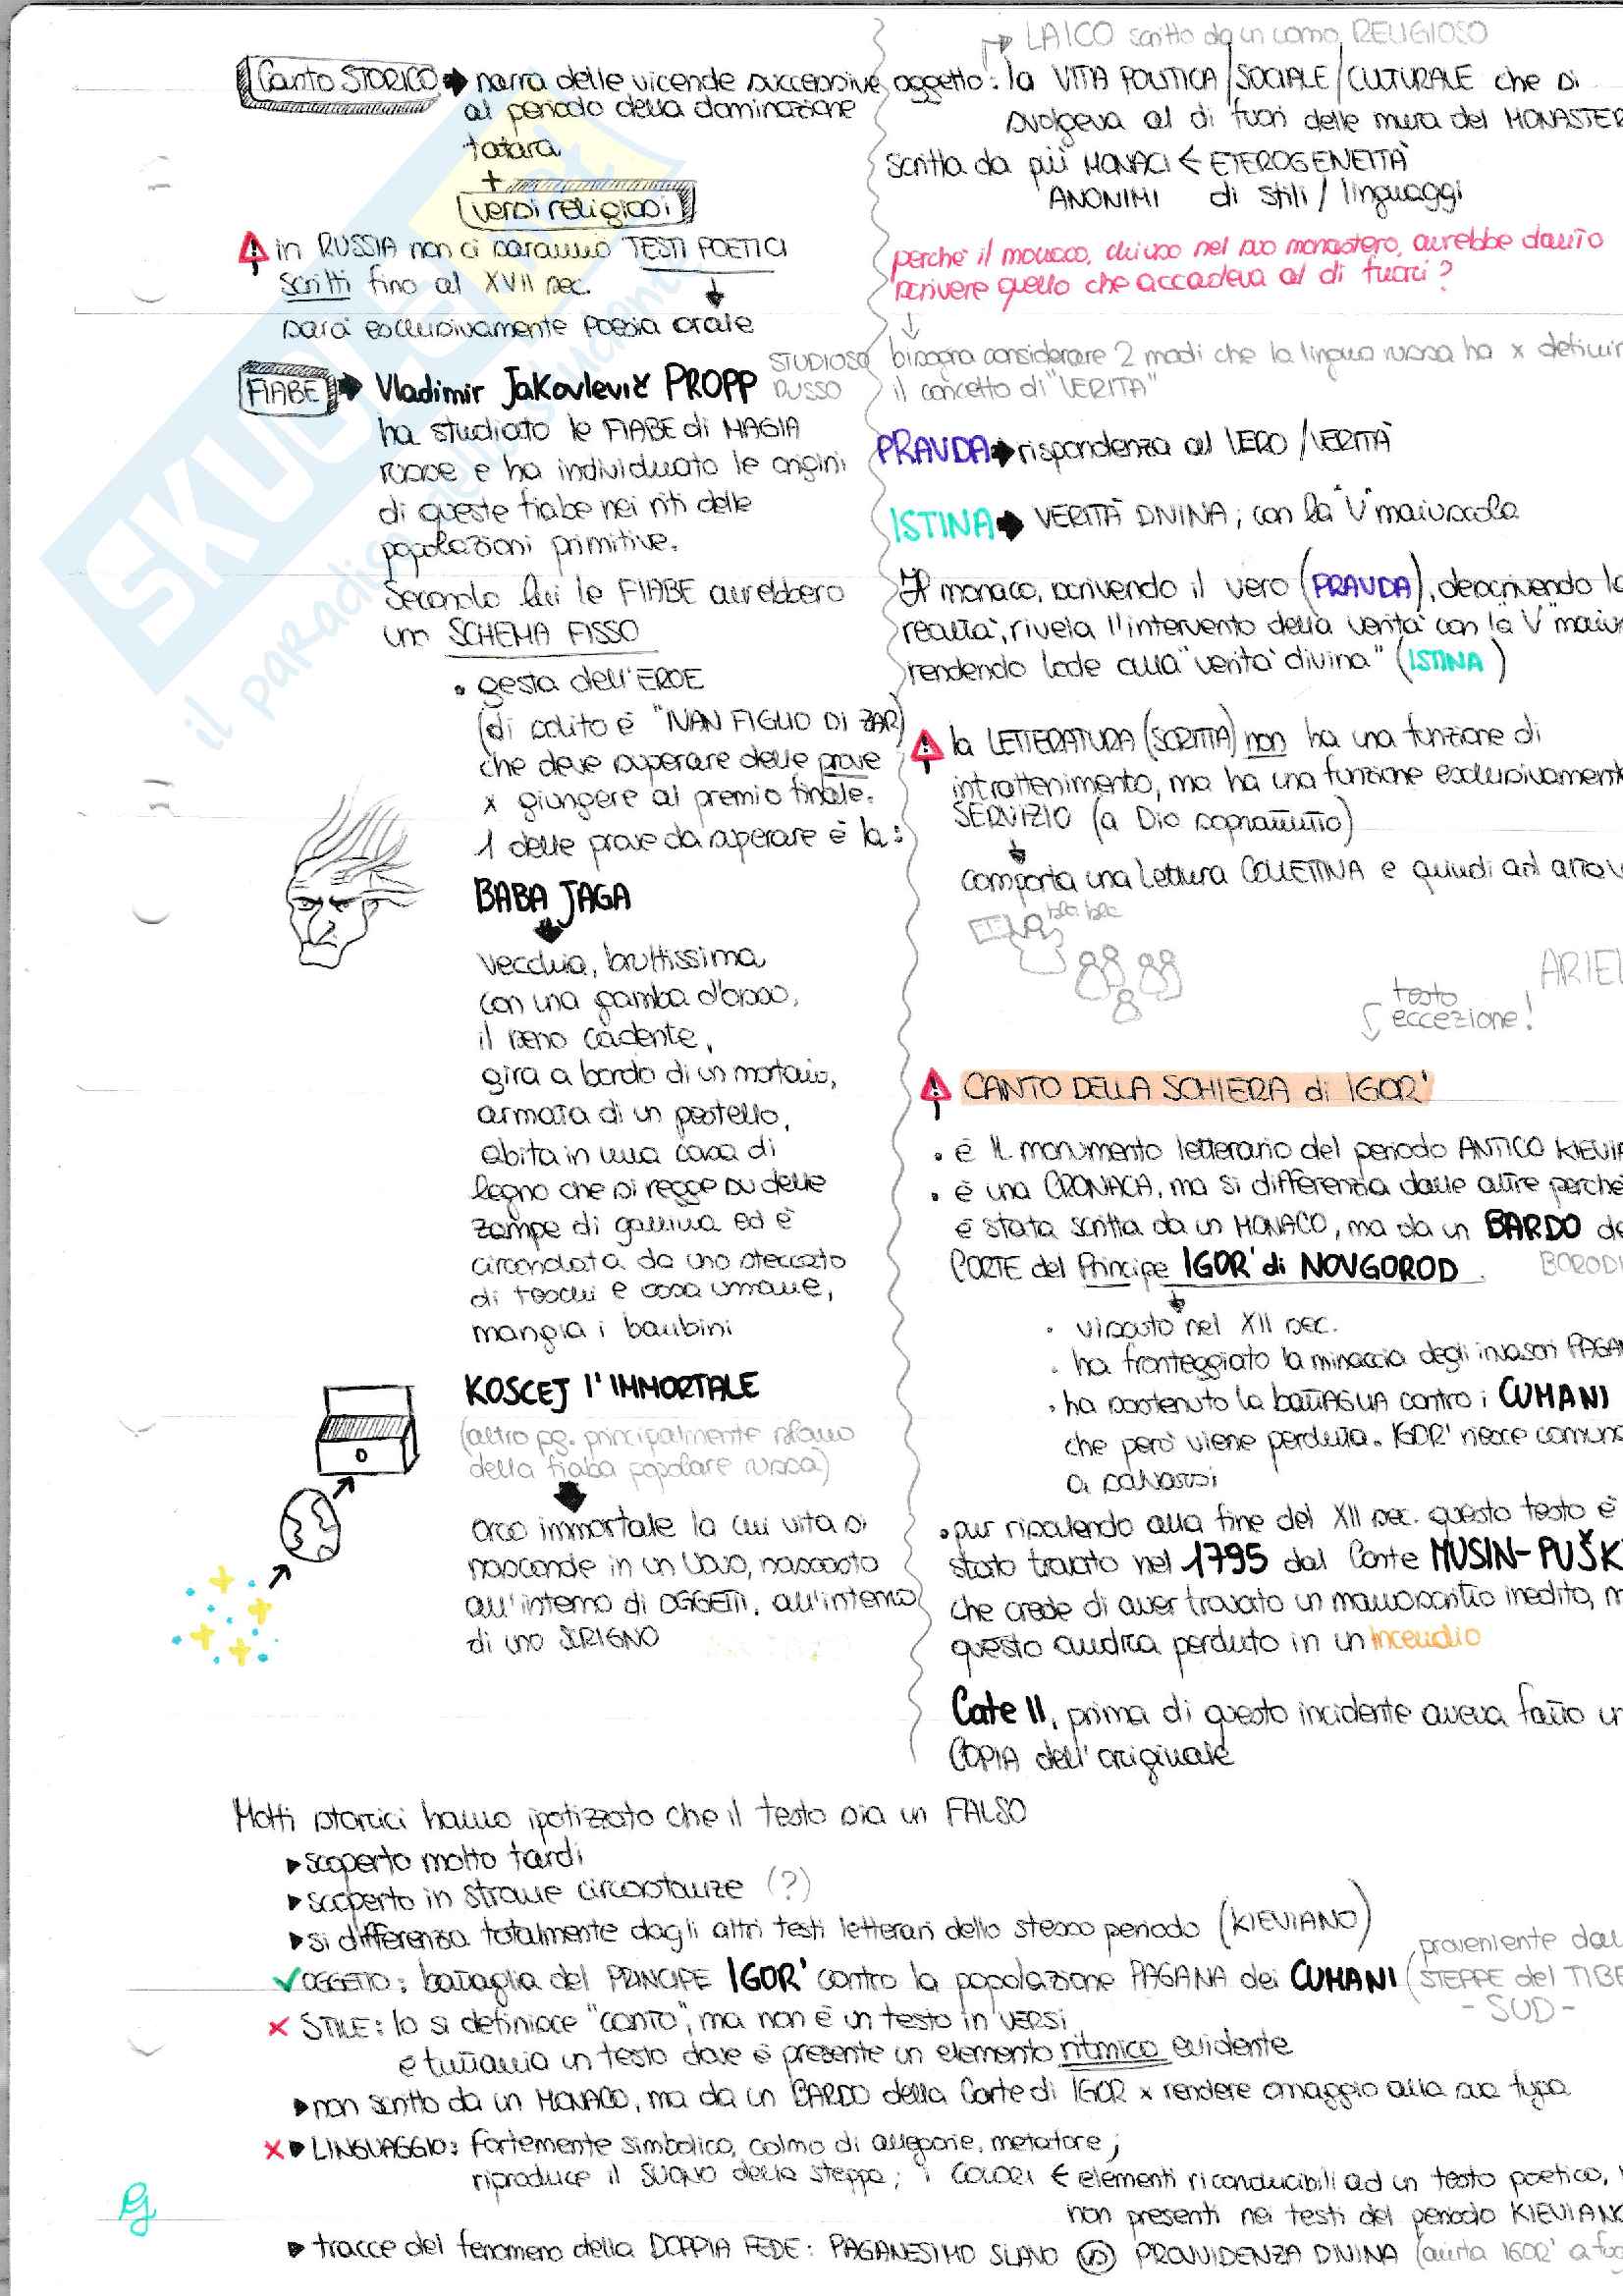 Canto STORICO → narra delle vicende successive
al periodo della dominazione
tatara
+
versi religiosi
in RUSSIA non ci saranno TESTI POETICI
scritti fino al XVII sec.
sarà esclusivamente poesia orale
FIABE → Vladimir Jakovlevič PROPP STUDIOSO
RUSSO
ha studiato le FIABE di MAGIA
russe e ha individuato le origini
di queste fiabe nei riti delle
popolazioni primitive.
Secondo lui le FIABE avrebbero
uno SCHEMA FISSO
• gesta dell'EROE
(di solito è "IVAN FIGLIO DI ZAR)
che deve superare delle prove
x giungere al premio finale.
1 delle prove da superare è la:
BABA JAGA
vecchia, bruttissima
con una gamba d'osso,
il seno cadente,
gira a bordo di un mortaio,
armata di un pestello,
abita in una casa di
legno che si regge su delle
zampe di gallina ed è
circondata da uno steccato
di teschi e ossa umane,
mangia i bambini
KOSCEJ l'IMMORTALE
(altro pg. principalmente slavo
della fiaba popolare russa)
orco immortale la cui vita si
nasconde in un uovo, nascosto
all'interno di OGGETTI, all'interno
di uno SCRIGNO
LAICO scritto da un uomo RELIGIOSO
oggetto: la VITA POLITICA/SOCIALE/CULTURALE che si
svolgeva al di fuori delle mura del MONASTER
scritta da più MONACI ← ETEROGENEITÀ
ANONIMI di stili / linguaggi
perché il monaco, chiuso nel suo monastero, avrebbe dovuto
scrivere quello che accadeva al di fuori?
↓
bisogna considerare 2 modi che la lingua russa ha x definir
il concetto di "VERITÀ"
PRAVDA → rispondenza al VERO / VERITÀ
ISTINA → VERITÀ DIVINA; con la "V" maiuscola
Il monaco, scrivendo il vero (PRAVDA), descrivendo la
realtà, rivela l'intervento della verità con la "V" maius
rendendo lode alla "verità divina" (ISTINA)
la LETTERATURA (SCRITTA) non ha una funzione di
intrattenimento, ma ha una funzione esclusivamente
SERVIZIO (a Dio soprattutto)
comporta una lettura COLLETTIVA e quindi ad alta v
bla bla
ARIEL
testo
eccezione!
CANTO DELLA SCHIERA di IGOR'
• è IL monumento letterario del periodo ANTICO KIEVIA
• è una CRONACA, ma si differenzia dalle altre perché
è stata scritta da un MONACO, ma da un BARDO de
CORTE del Principe IGOR' di NOVGOROD
BORODI
• vissuto nel XII sec.
• ha fronteggiato la minaccia degli invasori PAGAN
• ha sostenuto la battaglia contro i CUMANI
che però viene perduta. IGOR' riesce comunq
a salvarsi
• pur risalendo alla fine del XII sec. questo testo è
stato trovato nel 1795 dal Conte MUSIN-PUŠK
che crede di aver trovato un manoscritto inedito, m
questo andrà perduto in un incendio
Cate II, prima di questo incidente aveva fatto un
COPIA dell'originale
Molti storici hanno ipotizzato che il testo sia un FALSO
▸ scoperto molto tardi
▸ scoperto in strane circostanze (?)
▸ si differenzia totalmente dagli altri testi letterari dello stesso periodo (KIEVIANO)
✓ OGGETTO: battaglia del PRINCIPE IGOR' contro la popolazione PAGANA dei CUMANI (proveniente dal
STEPPE del TIBE
- SUD -
× STILE: lo si definisce "canto", ma non è un testo in VERSI
è tuttavia un testo dove è presente un elemento ritmico evidente
▸ non scritto da un MONACO, ma da un BARDO della Corte di IGOR x rendere omaggio alla sua
× ▸ LINGUAGGIO: fortemente simbolico, colmo di allegorie, metafore;
riproduce il SUONO della steppa; i COLORI ← elementi riconducibili ad un testo poetico,
non presenti nei testi del periodo KIEVIANO
▸ tracce del fenomeno della DOPPIA FEDE: PAGANESIMO SLAVO VS PROVVIDENZA DIVINA (aiuta IGOR' a fug
SKUOLA.net
il paradiso dello studente